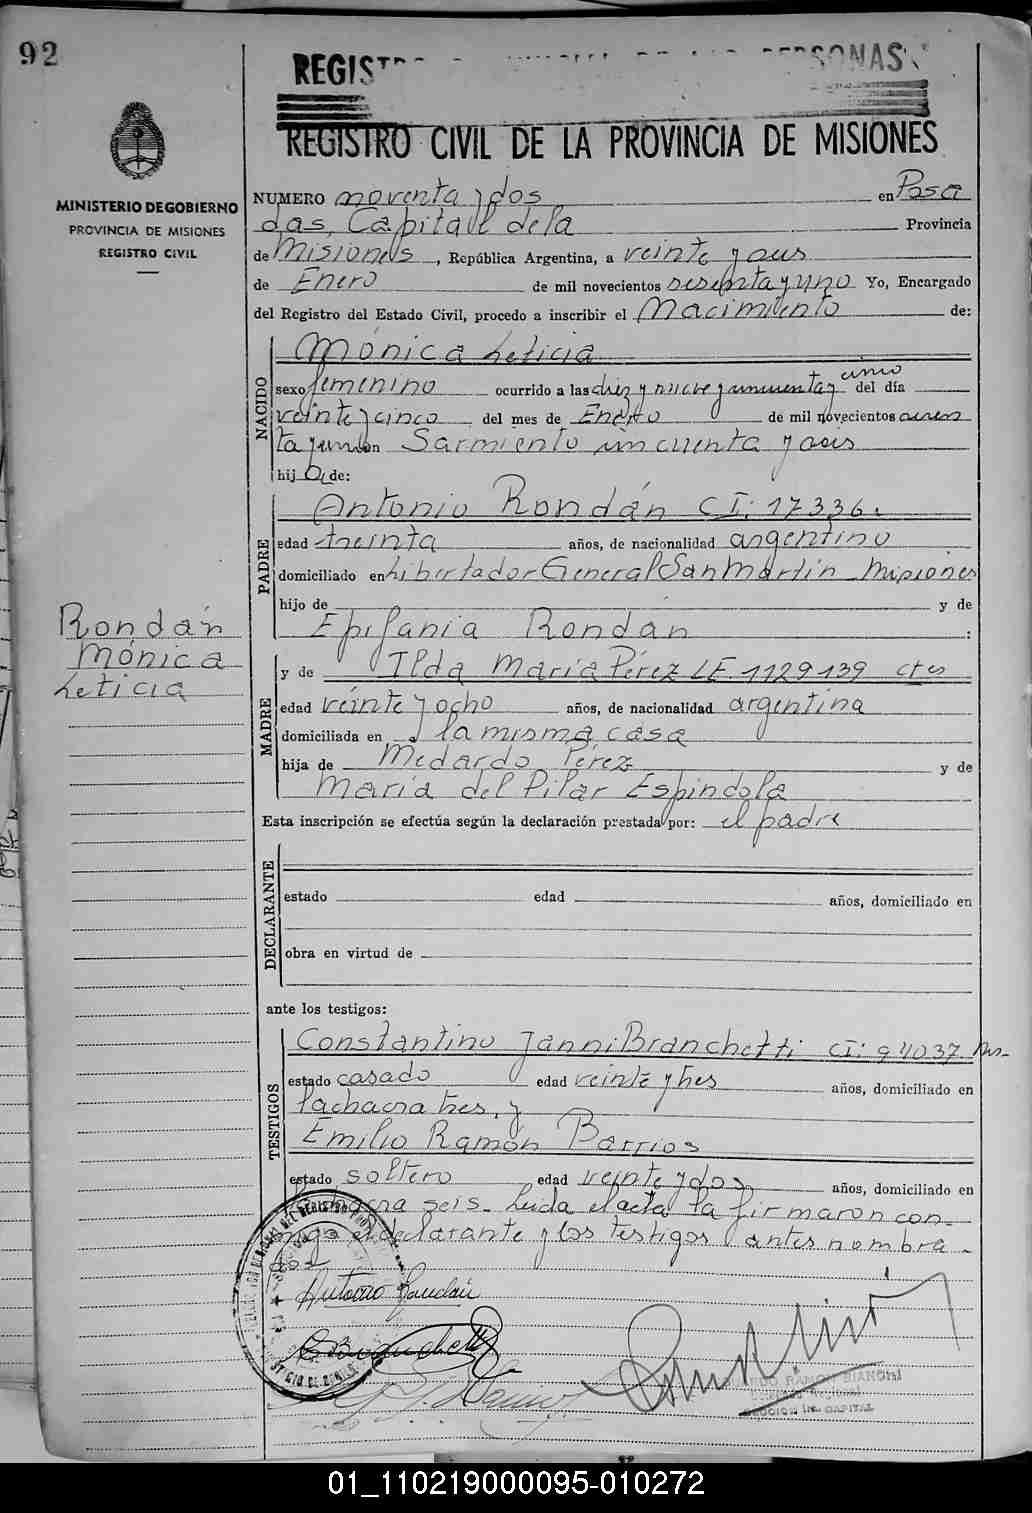 92
REGISTRO PERSONAS
REGISTRO CIVIL DE LA PROVINCIA DE MISIONES
MINISTERIO DE GOBIERNO
PROVINCIA DE MISIONES
REGISTRO CIVIL
NUMERO noventa y dos en Posa
das, Capital de la Provincia
de Misiones, República Argentina, a veinte y seis
de Enero de mil novecientos sesenta y uno Yo, Encargado
del Registro del Estado Civil, procedo a inscribir el Nacimiento de:
NACIDO
Mónica Leticia
sexo femenino ocurrido a las diez y nueve y cincuenta y cinco del día
veinte y cinco del mes de Enero de mil novecientos sesen
ta y uno en Sarmiento cincuenta y seis
hij a de:
PADRE
Antonio Rondán CI: 17336.
edad treinta años, de nacionalidad argentino
domiciliado en Libertador General San Martín Misiones
hijo de y de
Epifania Rondán :
Rondán
Mónica
Leticia
MADRE
y de Ilda María Pérez LE. 1129139 Ctes
edad veinte y ocho años, de nacionalidad argentina
domiciliada en la misma casa
hija de Medardo Pérez y de
María del Pilar Espindola
Esta inscripción se efectúa según la declaración prestada por: el padre
DECLARANTE
estado edad años, domiciliado en
obra en virtud de
ante los testigos:
TESTIGOS
Constantino Janni Branchetti CI: 94037. Ms.
estado casado edad veinte y tres años, domiciliado en
la chacra tres, y
Emilio Ramón Barrios
estado soltero edad veinte y dos años, domiciliado en
la chacra seis. Leida el acta la firmaron con-
migo el declarante y los testigos antes nombra-
dos
Antonio Rondán
RAMON BIANCHI
CAPITAL
01_110219000095-010272